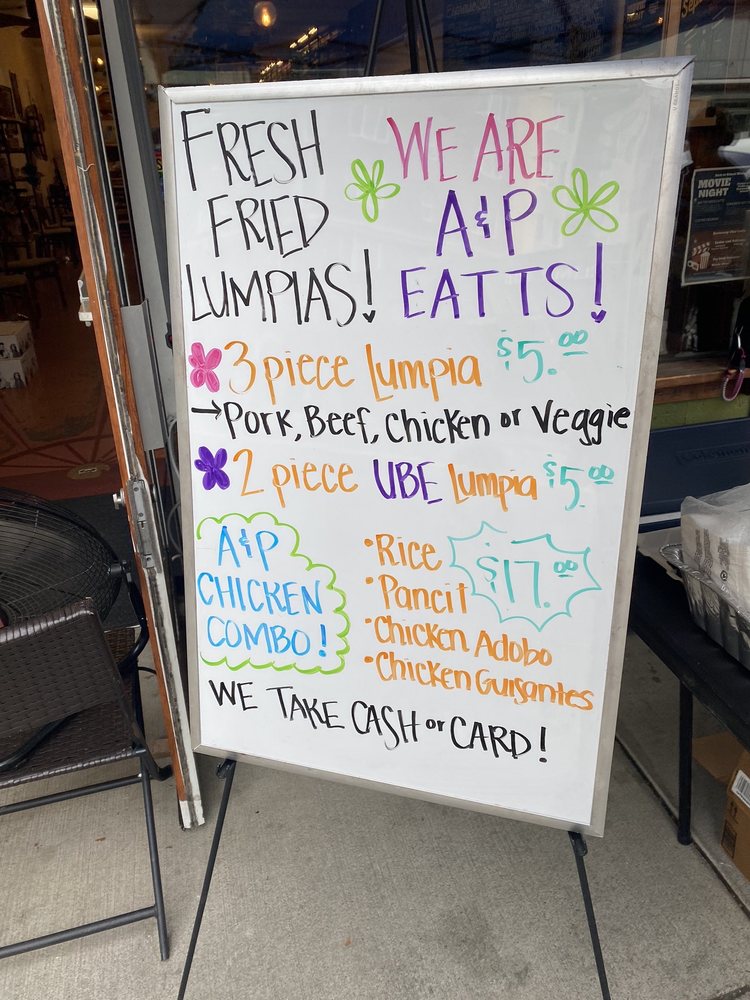 FRESH
FRIED
LUMPIAS!
WE ARE
A&P
EATTS!
3 piece Lumpia $5.00
→Pork, Beef, Chicken or Veggie
2 piece UBE Lumpia $5.00
A&P
CHICKEN
COMBO!
•Rice
•Pancit
•Chicken Adobo
•Chicken Guisantes
$17.00
WE TAKE CASH or CARD!
MOVIE
NIGHT